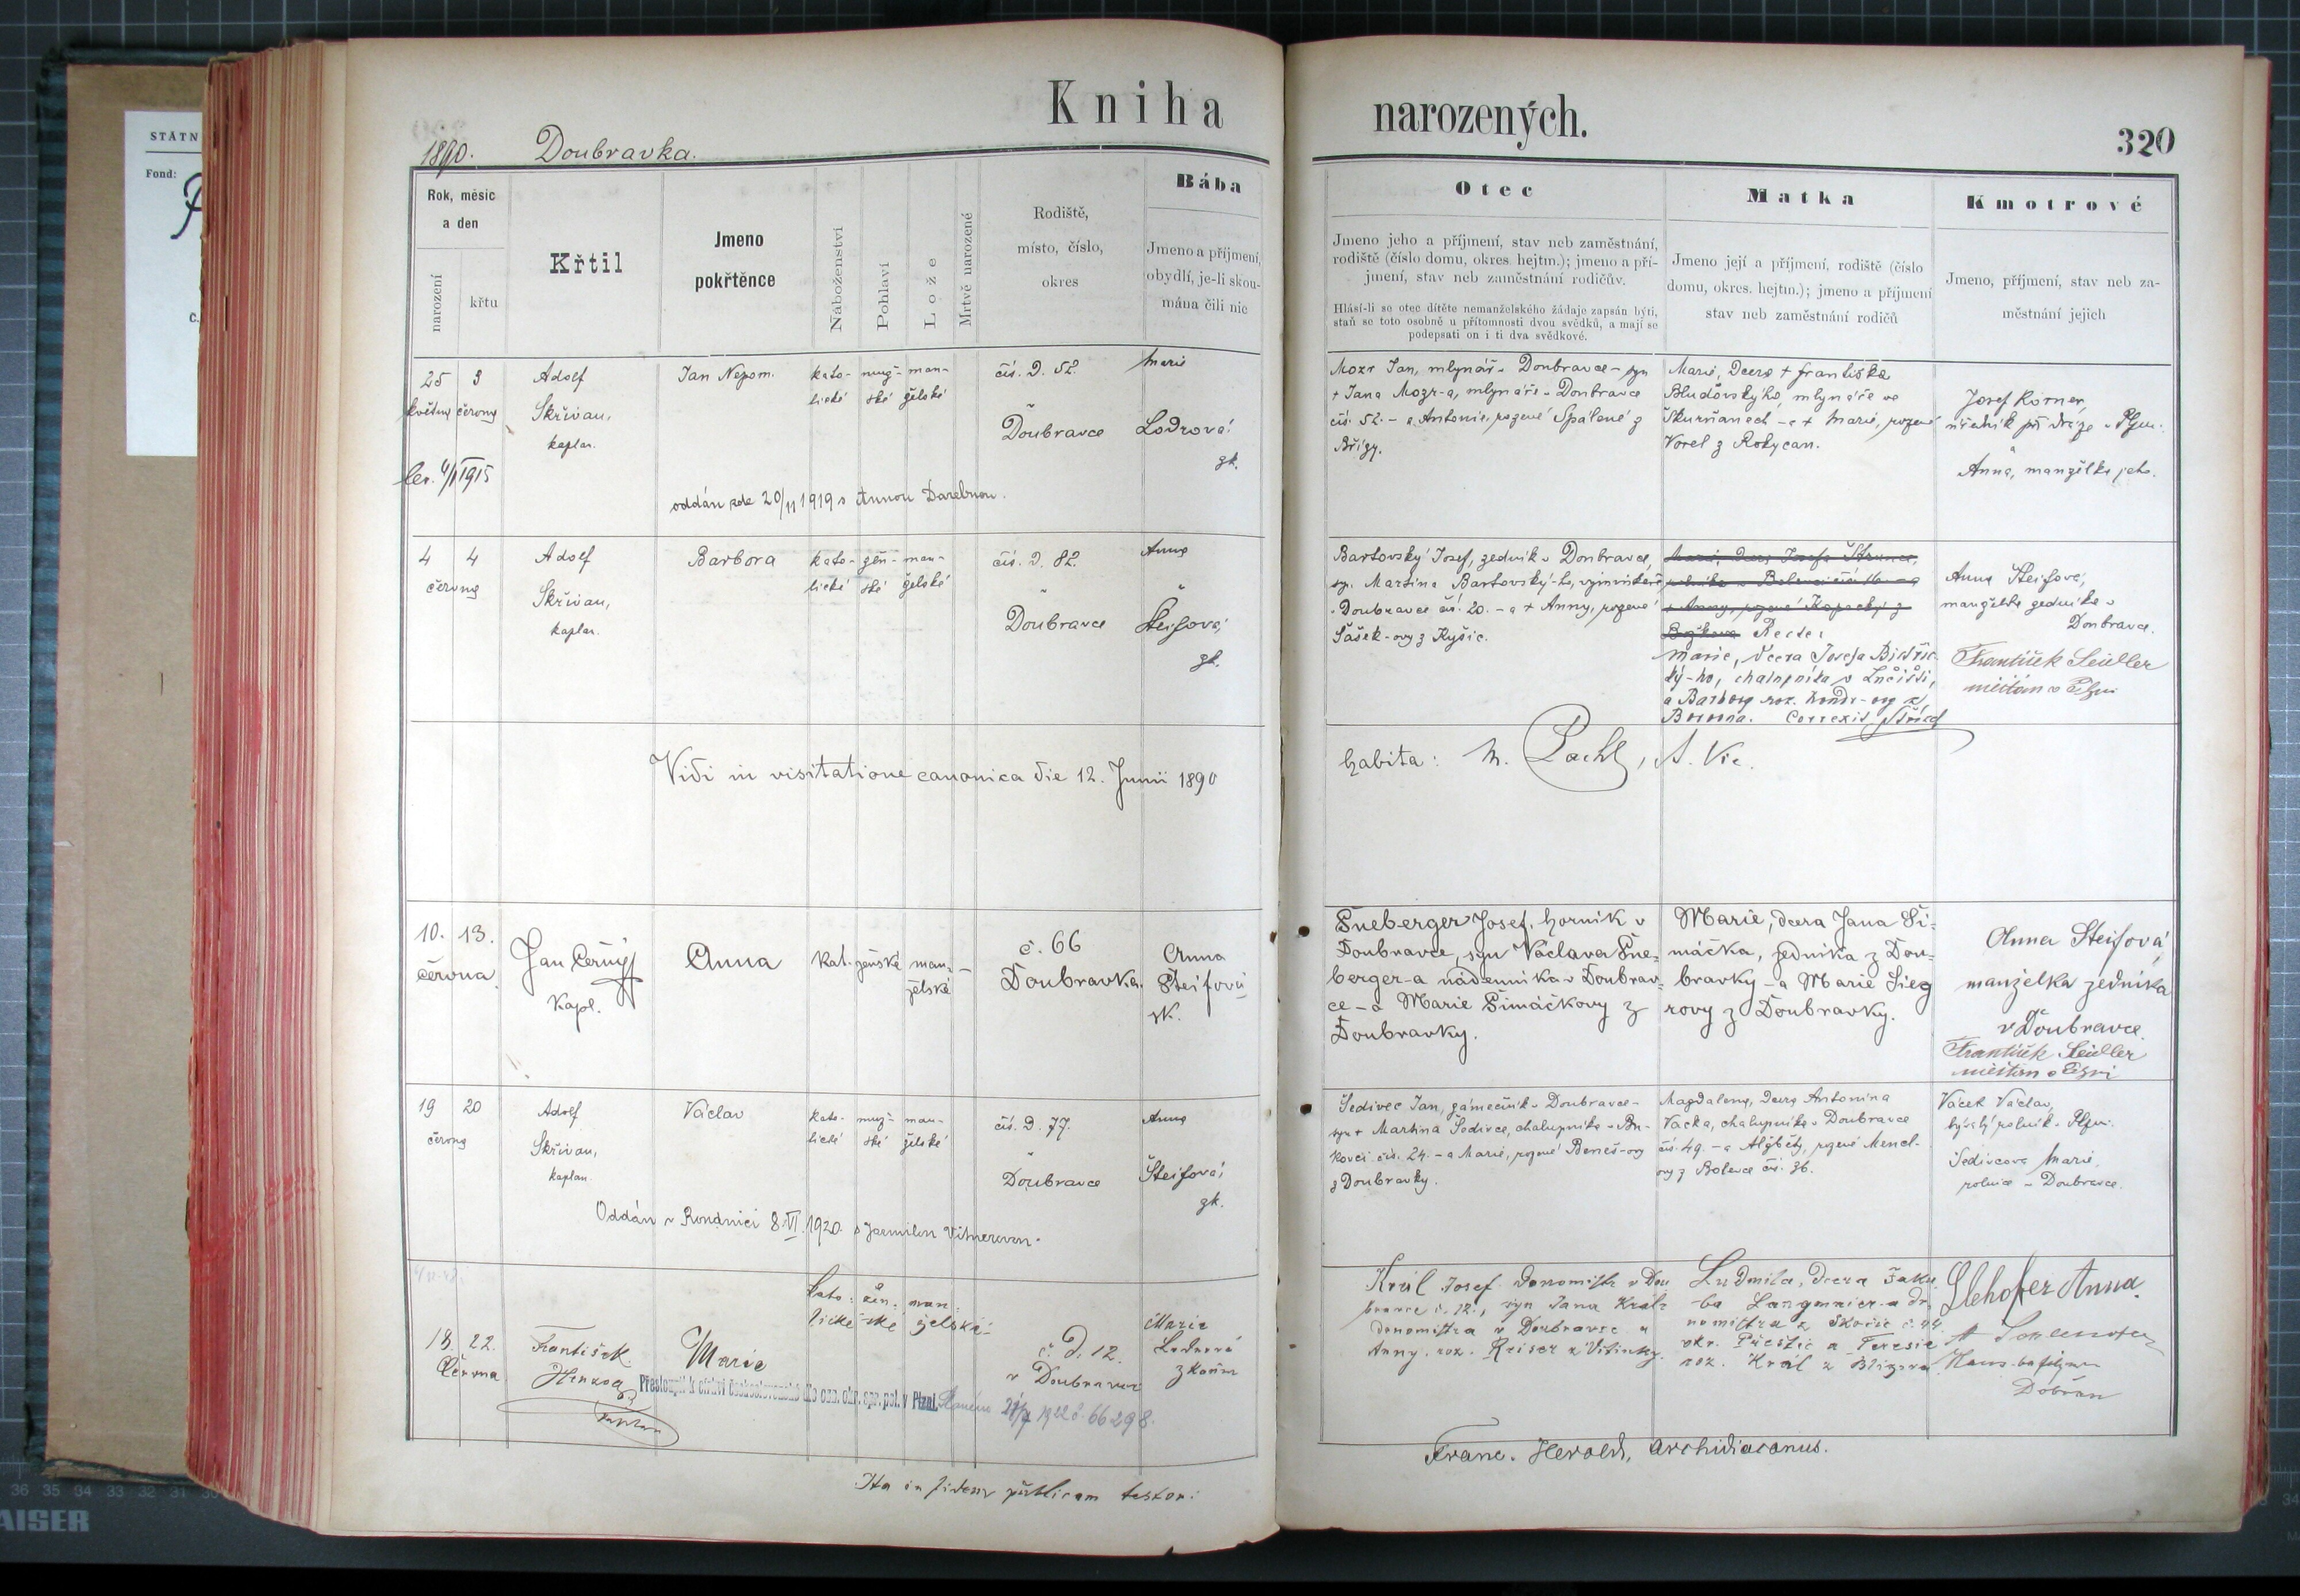 Kniha narozených.
320
1890. Doubravka.
STÁTN
Fond:
Č.
Rok, měsíc
a den
narození
křtu
Křtil
Jmeno
pokřtěnce
Náboženství
Pohlaví
Lože
Mrtvě narozené
Rodiště,
místo, číslo,
okres
Bába
Jmeno a příjmení,
obydlí, je-li skou-
mána čili nic
Otec
Jmeno jeho a příjmení, stav neb zaměstnání,
rodiště (číslo domu, okres. hejtm.); jmeno a pří-
jmení, stav neb zaměstnání rodičův.
Hlásí-li se otec dítěte nemanželského žádaje zapsán býti,
staň se toto osobně u přítomnosti dvou svědků, a mají se
podepsati on i ti dva svědkové.
Matka
Jmeno její a příjmení, rodiště (číslo
domu, okres. hejtm.); jmeno a příjmení
stav neb zaměstnání rodičů
Kmotrové
Jmeno, příjmení, stav neb za-
městnání jejich
25 3
května června
1915
Adolf
Skřivan,
kaplan.
Jan Nepom.
kato-
lické
muž-
ské
man-
želské
čís. d. 52.
v
Doubravce
Marie
Lodrová
zk.
oddán zde 20/11 1919 s Annou Darebnou.
Mozr Jan, mlynář v Doubravce - syn
+ Jana Mozr-a, mlynáře v Doubravce
čís. 52. - a Antonie, rozené Spálené z
Břízy.
Marie, dcera + Františka
Bludovského, mlynáře ve
Škurňanech - a + Marie, rozené
Vorel z Rokycan.
Josef Körner,
úředník při dráze v Plzni.
a
Anna, manželka jeho.
4 4
června
Adolf
Skřivan,
kaplan.
Barbora
kato-
lické
žen-
ské
man-
želské
čís. d. 82.
v
Doubravce
Anna
Šteifová,
zk.
Bartovský Josef, zedník v Doubravce,
syn Martina Bartovský-ho,
v Doubravce čís. 20. - a + Anny, rozené
Šašek-ovy z Kyšic.
Marie, dcera Josefa Štrunce,
rolníka z Bolevce čís. 16 - a
+ Anny, rozené Kopecký z
Božkova Recte:
Marie, dcera Josefa Bistřic-
ký-ho, chalupníka v Lučišti,
a Barbory roz. Kondr-ovy z
Borovna. Correxit
Anna Šteifová,
manželka zedníka v
Doubravce.
František Seidler
měšťan v Plzni
Vidi in visitatione canonica die 12. Junii 1890
habita: M. Pachl, A. Vic.
10. 13.
června.
Jan Černý
kapl.
Anna
kat.
ženské
man-
želské
–
č. 66
Doubravka.
Anna
Šteifová
zk.
Šneberger Josef, horník v
Doubravce, syn Václava Šne-
berger-a nádenníka v Doubrav-
ce - a Marie Šimáčkovy z
Doubravky.
Marie, dcera Jana Ši-
máčka, zedníka z Dou-
bravky - a Marie Sieg
rovy z Doubravky.
Anna Šteifová,
manželka zedníka
v Doubravce.
František Seidler
měšťan v Plzni
19 20
června
Adolf
Skřivan,
kaplan.
Václav
kato-
lické
muž-
ské
man-
želské
čís. d. 77.
v
Doubravce
Anna
Šteifová,
zk.
Oddán v Roudnici 8.VI. 1920 s Jarmilou Vitnerovou.
Šedivec Jan, zámečník v Doubravce -
syn + Martina Šedivce, chalupníka v Bu-
kovci čís. 24. - a Marie, rozené Beneš-ovy
z Doubravky.
Magdalena, dcera Antonína
Vacka, chalupníka v Doubravce
čís. 49. - a Alžběty, rozené Mencl-
ovy z Bolevce čís. 36.
Vacek Václav,
bývalý rolník v Plzni.
Šedivcová Marie,
rolnice v Doubravce.
18. 22.
Června
František
Herkog
kaplan
Marie
kato-
lické
žen-
ské
man-
želské
č. d. 12.
v Doubravce
Marie
Lodrová
zkouš.
Přestoupil k církvi československé dle ozn. okr. spr. pol. v Plzni. 1922 č. 66298.
Král Josef domomistr v Dou
bravce č. 12., syn Jana Král-
domomistra v Doubravce a
Anny, roz. Reiser z Vitinky.
Ludmila, dcera Jaku-
-ba Langmaier-a do-
momistra z Skočic č. 44
okr. Přeštic a Teresie
roz. Král z Blizova
Llehofer Anna.
Dobřan
Ita in fidem publicam testor:
Franc. Herold, Archidiaconus.
36 35 34 33 32 31
AISER